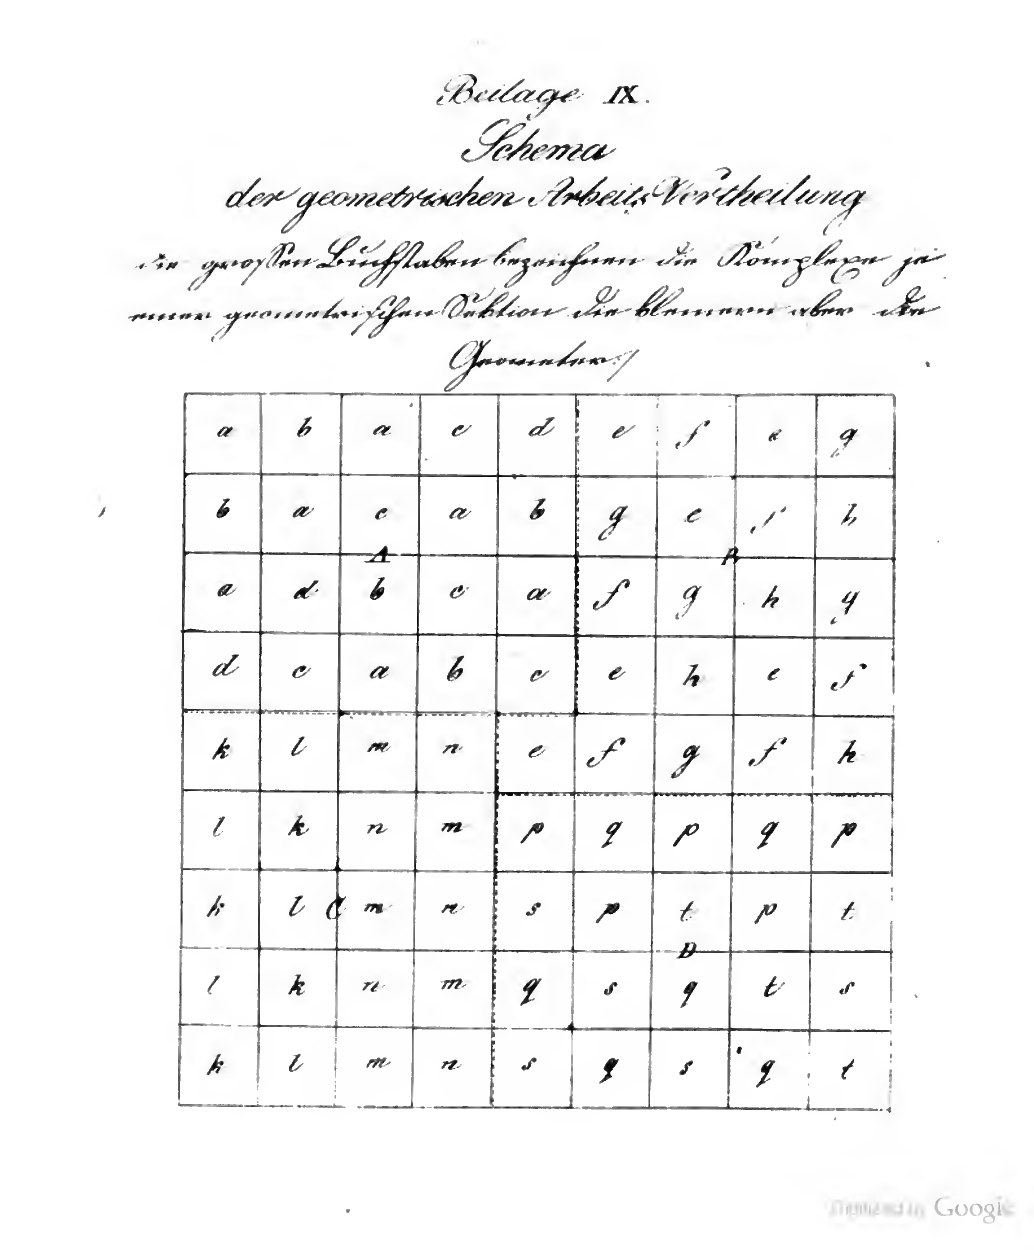 Beilage IX.
Schema
der geometrischen Arbeits Vertheilung
die großen Buchstaben bezeichnen die Komplexe je
einer geometrischen Sektion die kleinern aber die
Geometer./
a b a c d e f e g
b a c a b g e f h
A B
a d b c a f g h g
d c a b c e h e f
k l m n e f g f h
l k n m p q p q p
k l C m n s p t p t
D
l k n m q s q t s
k l m n s q s q t
Digitized by Google